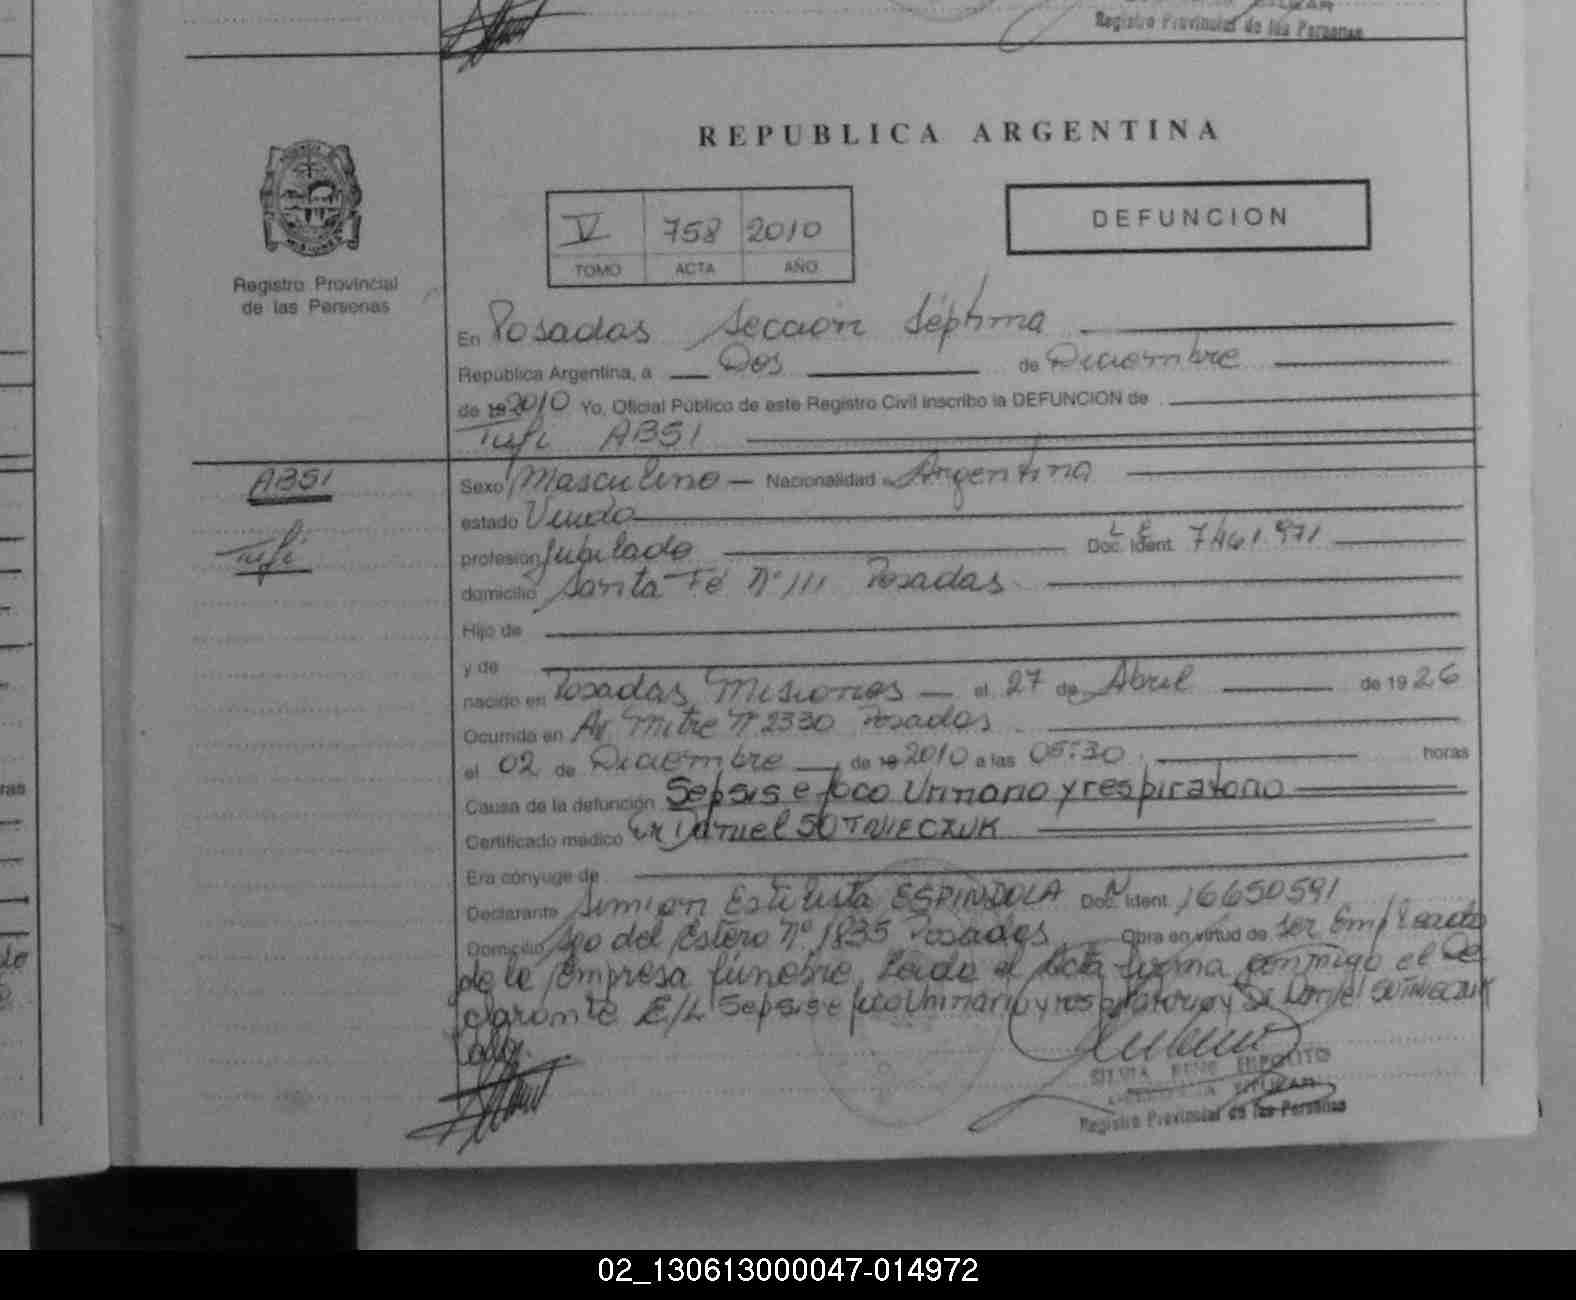 Registro Provincial de las Personas
REPUBLICA ARGENTINA
V 758 2010
TOMO ACTA AÑO
DEFUNCION
Registro Provincial
de las Personas
En Posadas Sección Séptima
República Argentina, a Dos de Diciembre
de 19 2010 Yo, Oficial Público de este Registro Civil inscribo la DEFUNCION de
Tufi ABSI
ABSI
Tufi
Sexo Masculino Nacionalidad Argentina
estado Viudo
profesión Jubilado Doc. Ident. L E 7461971
domicilio Santa Fé Nº 111 Posadas
Hijo de
y de
nacido en Posadas Misiones el 27 de Abril de 1926
Ocurrida en Av Mitre Nº 2330 Posadas
el 02 de Diciembre de 19 2010 a las 05:30 horas
Causa de la defunción Sepsis e foco Urinario y respiratorio
Certificado médico Dr Daniel SOTNIECZUK
Era cónyuge de
Declarante Simion Estilista ESPINDOLA Doc. Ident. N 16650591
Domicilio Sgo del Estero Nº 1835 Posadas Obra en virtud de ser Empleado
de la Empresa fúnebre. Leida el Acta firma conmigo el De
clarante E/L Sepsis e foco Urinario y respiratorio y Dr Daniel SOTNIECZUK
SILVIA RENE HIPOLITO
Registro Provincial de las Personas
02_130613000047-014972